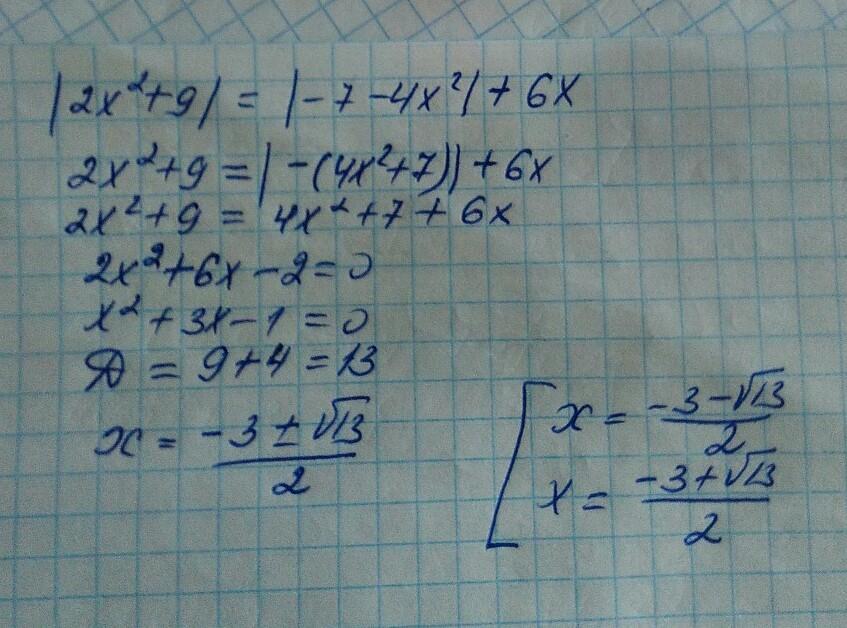 |2x²+9| = |-7-4x²| + 6x
2x²+9 = |-(4x²+7)| + 6x
2x²+9 = 4x²+7+6x
2x²+6x-2=0
x²+3x-1=0
D = 9+4 = 13
x = (-3±√13)/2
[ x = (-3-√13)/2
x = (-3+√13)/2